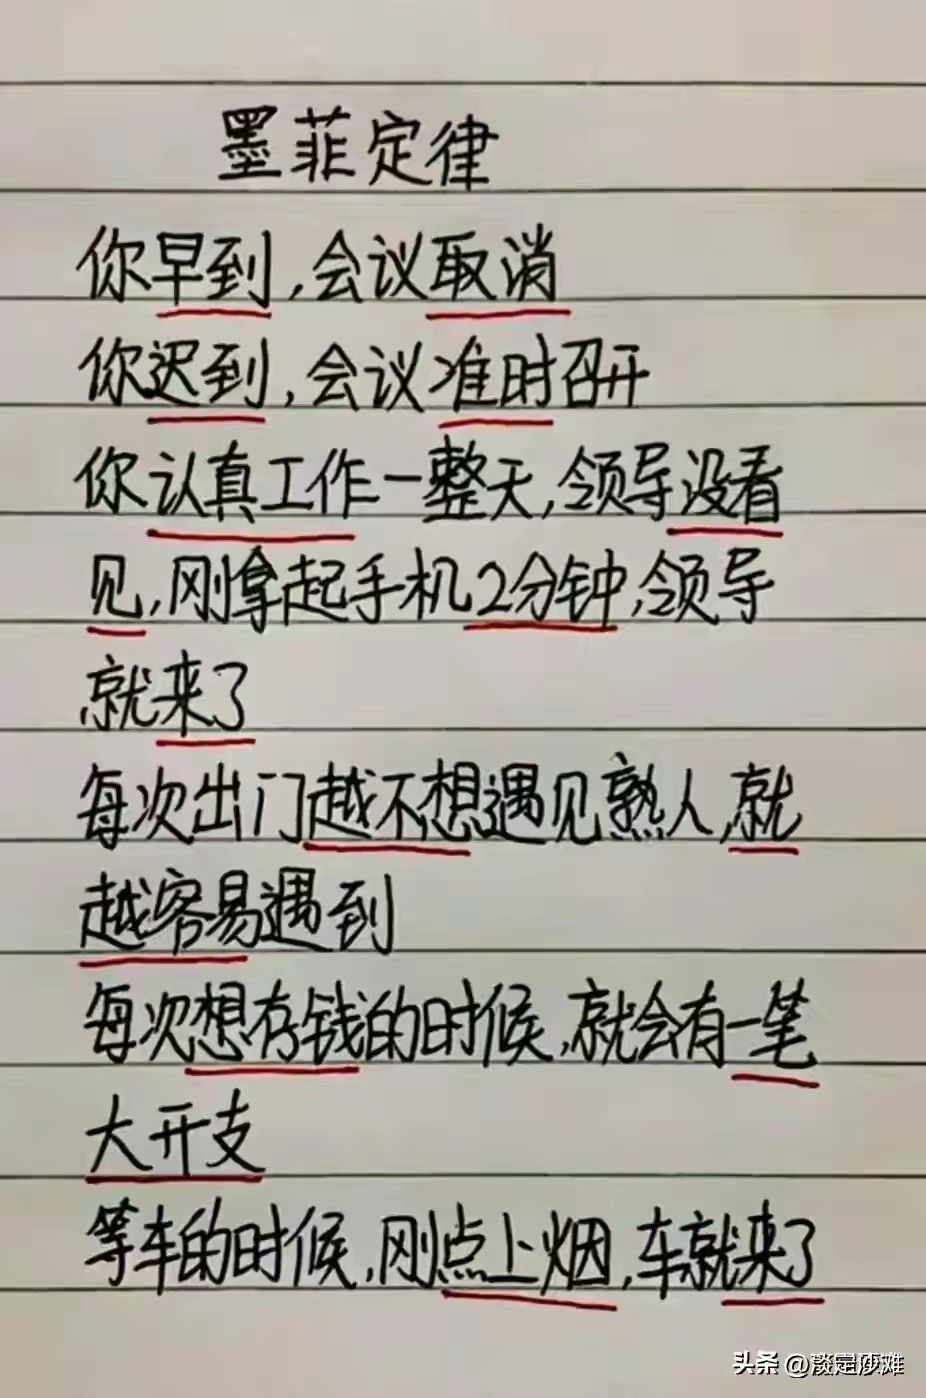 墨菲定律
你早到,会议取消
你迟到,会议准时召开
你认真工作一整天,领导没看
见,刚拿起手机2分钟,领导
就来了
每次出门越不想遇见熟人,就
越容易遇到
每次想存钱的时候,就会有一笔
大开支
等车的时候,刚点上烟,车就来了
头条 @淡定沙滩